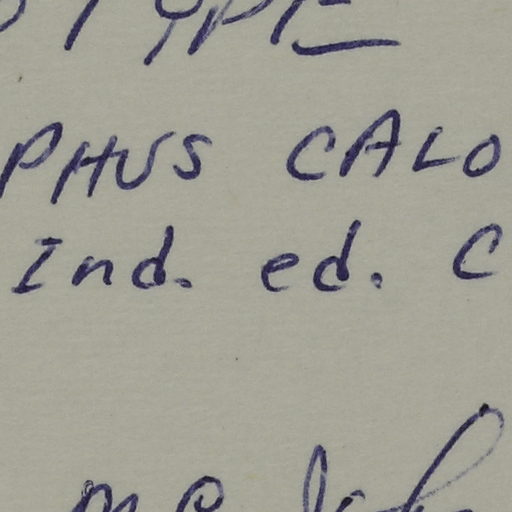 TYPE
PHUS CALO
Ind. ed. C